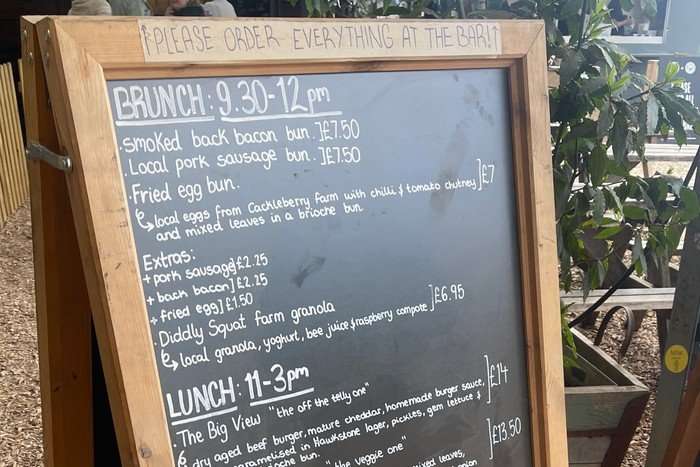 ↑PLEASE ORDER EVERYTHING AT THE BAR!↑
BRUNCH: 9.30-12pm
·smoked back bacon bun.]£7.50
·Local pork sausage bun.]£7.50
·Fried egg bun.
↳local eggs from Cackleberry farm with chilli & tomato chutney]£7
and mixed leaves in a brioche bun.
Extras:
+pork sausage]£2.25
+back bacon]£2.25
+fried egg]£1.50
·Diddly Squat farm granola
↳local granola, yoghurt, bee juice & raspberry compote]£6.95
LUNCH: 11-3pm
·The Big View "the off the telly one"
↳dry aged beef burger, mature cheddar, homemade burger sauce,]£14
caramelised in Hawkstone lager, pickles, gem lettuce &
brioche bun.
"the veggie one"
mixed leaves,]£13.50
onion